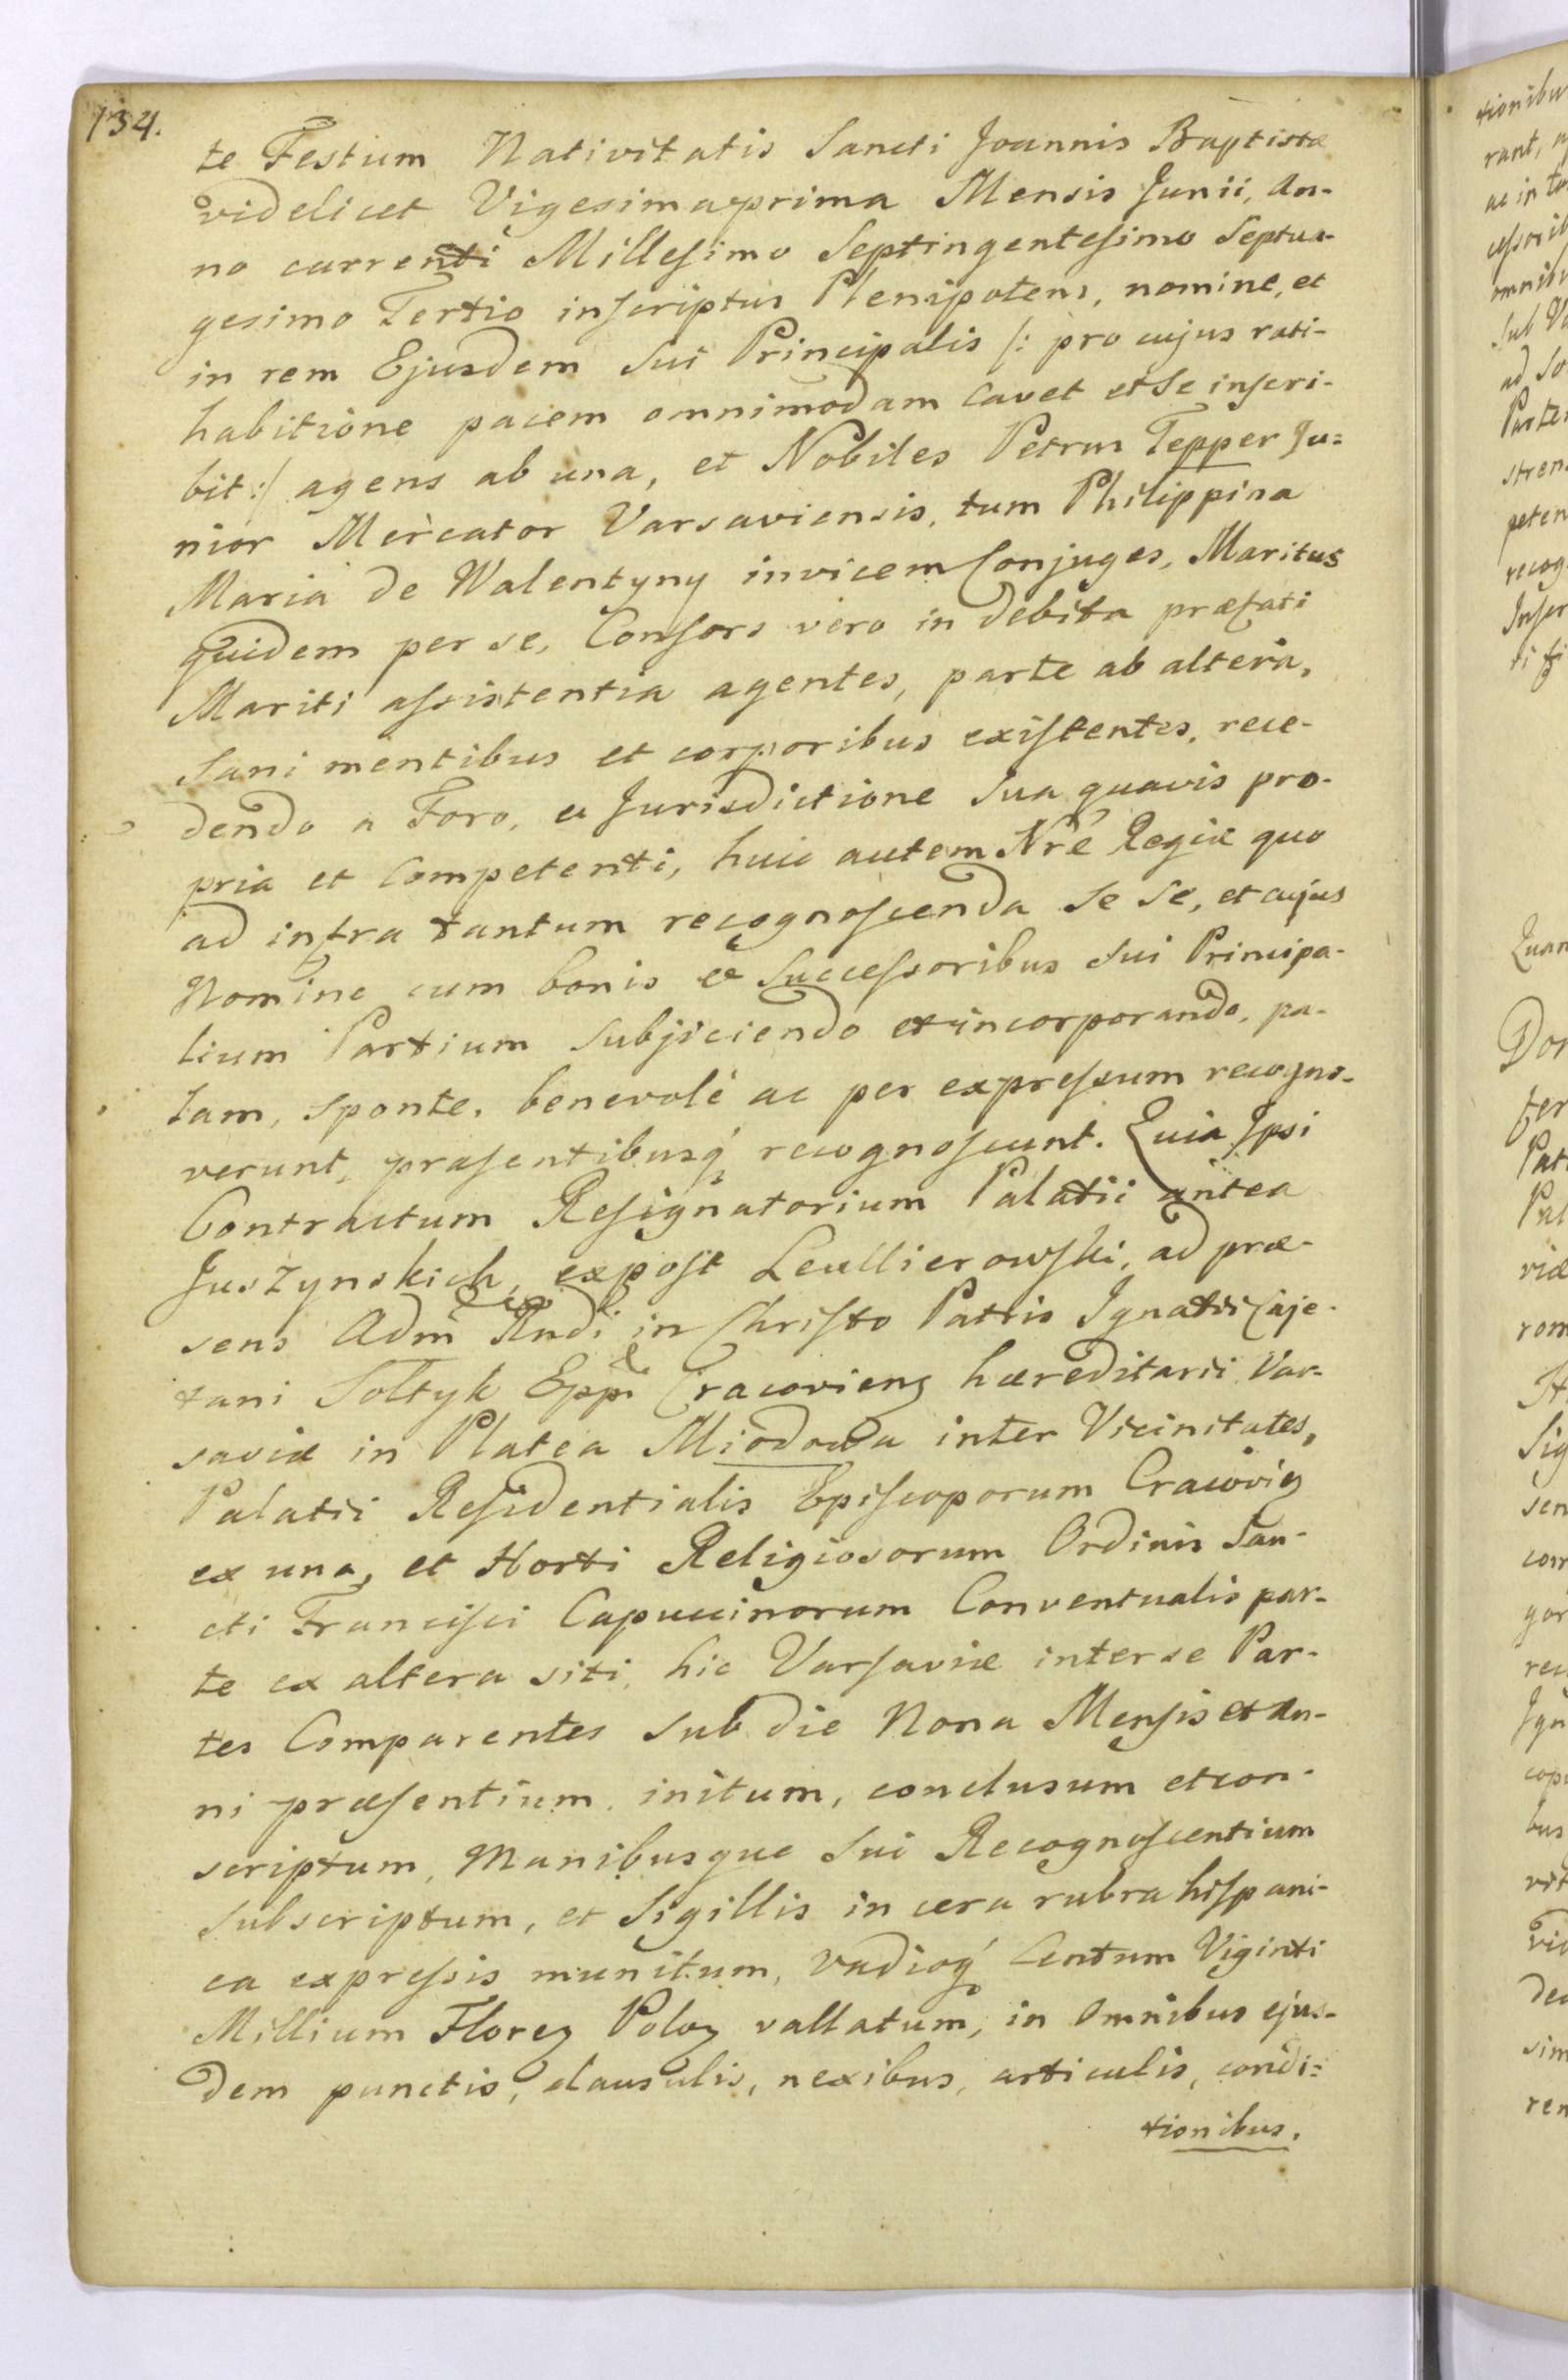 134.
te Festum Nativitatis Sancti Joannis Baptistæ
videlicet Vigesima prima Mensis Junii, An-
no currenti Millesimo Septingentesimo Septua-
gesimo Tertio inscriptus Plenipotens, nomine, et
in rem Ejusdem sui Principalis /: pro cujus rati-
habitione pacem omnimodam cavet et se inscri-
bit :/ agens ab una, et Nobiles Petrus Tepper Ju=
nior Mercator Varsaviensis, tum Philippina
Maria de Walentyny invicem Conjuges, Maritus
quidem per se, Consors vero in debita præfati
Mariti assistentia agentes, parte ab altera,
Sani mentibus et corporibus existentes, rece-
dendo a Foro, et Jurisdictione sua quavis pro-
pria et competenti, huic autem Nrê Regiæ quo
ad infra tantum recognoscenda se se, et cujus
Nomine cum bonis et Successoribus sui Principa-
lium Partium subjiciendo et incorporando, pa-
lam, sponte, benevolè ac per expressum recogno-
verunt, præsentibusq́ recognoscunt. Quia Ipsi
Contractum Resignatorium Palatii antea
Juszynskich, expost Leullierowski, ad præ-
sens Adm̃ Rndi in Christo Patris Ignatii Caje-
tani Sołtyk Eppi Cracovieng hæreditarii Var-
saviæ in Platea Miodowa inter Vicinitates,
Palatii Residentialis Episcoporum Cracovieg
ex una, et Horti Religiosorum Ordinis San-
cti Francisci Capucinorum Conventualis par-
te ex altera siti, hic Varsaviæ inter se Par-
tes Comparentes sub die Nona Mensis et An-
ni præsentium, initum, conclusum et con-
scriptum, Manibusque sui Recognoscentium
subscriptum, et Sigillis in cera rubra hispani-
ca expressis munitum, Vadioq́ Centum Viginti
Millium Floreg Polog vallatum, in Omnibus ejus-
dem punctis, clausulis, nexibus, articulis, condi=
tionibus.